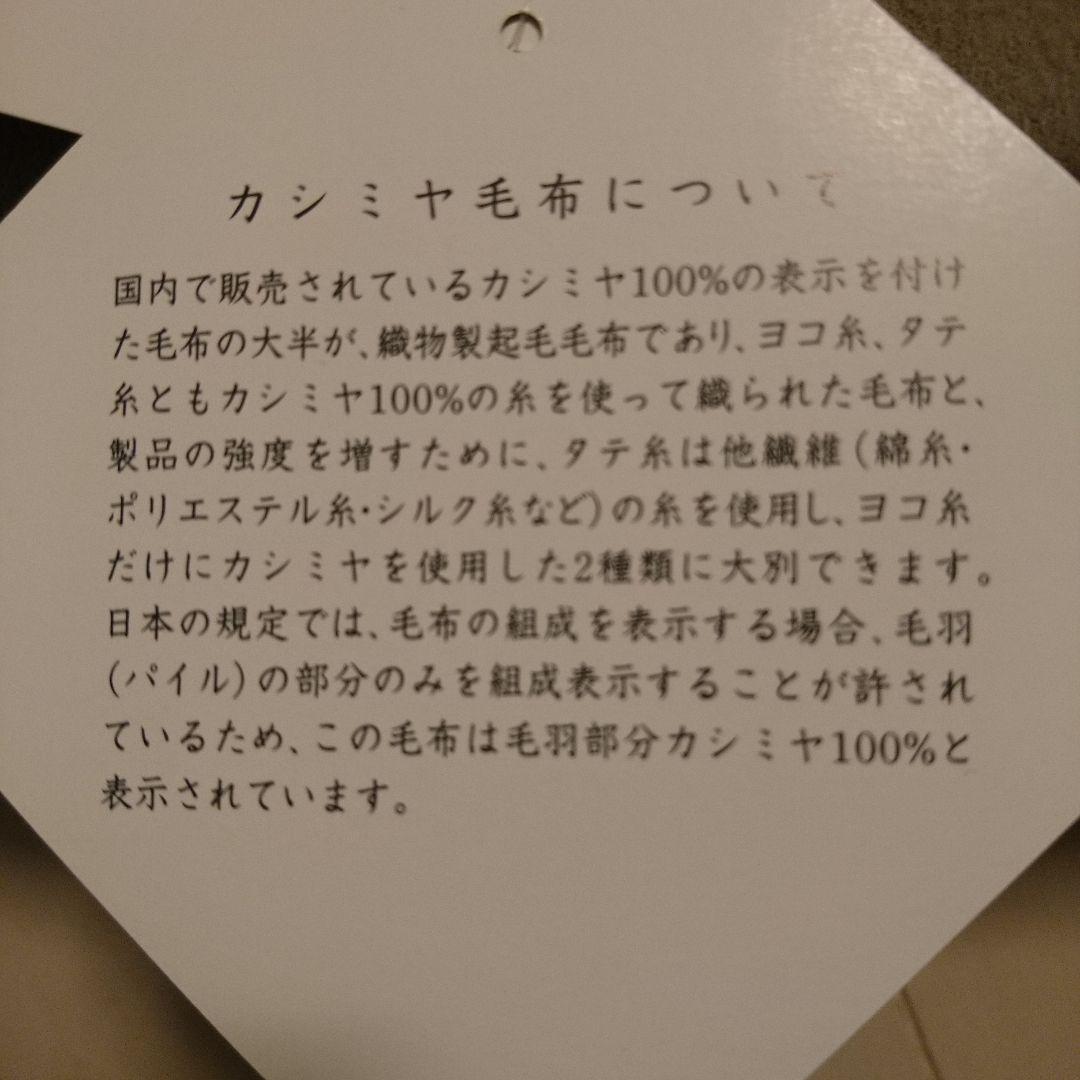 カシミヤ毛布について
国内で販売されているカシミヤ100%の表示を付け
た毛布の大半が、織物製起毛毛布であり、ヨコ糸、タテ
糸ともカシミヤ100%の糸を使って織られた毛布と、
製品の強度を増すために、タテ糸は他繊維(綿糸・
ポリエステル糸・シルク糸など)の糸を使用し、ヨコ糸
だけにカシミヤを使用した2種類に大別できます。
日本の規定では、毛布の組成を表示する場合、毛羽
(パイル)の部分のみを組成表示することが許され
ているため、この毛布は毛羽部分カシミヤ100%と
表示されています。